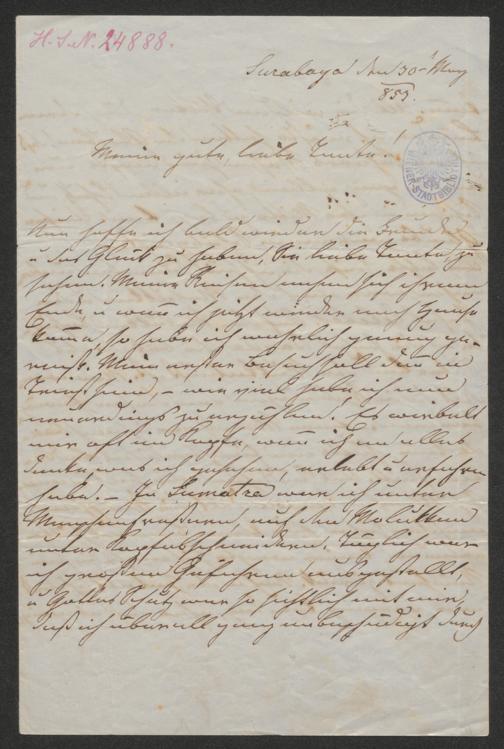 H. I. N. 24888.
Surabaya den 30t May
853.
Meine gute, liebe Tante!
WIENER STADTBIBLIOTHEK
Nun hoffe ich bald wieder die Freude
u das Glück zu haben, Sie liebe Tante zu
sehen. Meine Reisen nahen sich ihrem
Ende, u wenn ich jetzt wieder nach Hause
komme, so habe ich wahrlich genug ge-
reist. Mein erster Besuch soll dann in
Triest sein, – wie viel habe ich nun
neuerdings zu erzählen! Es wirbelt
mir oft im Kopfe, wenn ich an alles
denke, was ich gesehen, erlebt u erfahren
habe. – In Sumatra war ich unter
Menschenfressern, auf den Molukken
unter Kopfabschneidern. Täglich war
ich großen Gefahren ausgestellt,
u Gottes Schutz war so sichtlich mit mir,
daß ich überall ganz unbeschädigt durch